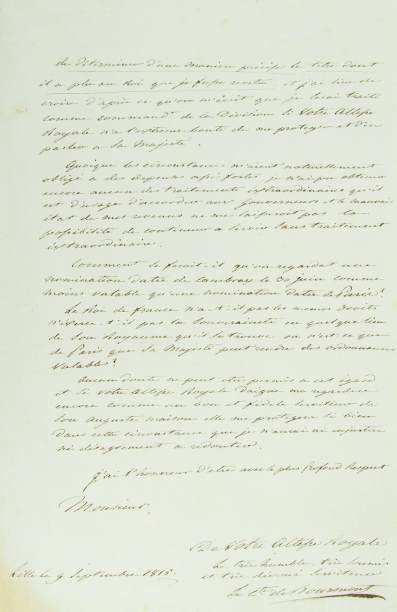 de déterminer d'une manière précise le titre dont
il a plu au Roi que je fusse et j'ai lieu de
croire d'après ce qu'on m'écrit que je serai traité
comme commandt. de la Division si Votre Altesse
Royale a l'extrême bonté de me protéger et d'en
parler a Sa Majesté.
Quoique les circonstances m'aient naturellement
obligé a des dépenses assés fortes je n'ai pu obtenir
encore aucun des traitements extraordinaires qu'il
est d'usage d'accorder aux Gouverneurs et le mauvais
état de mes revenus ne me laisseroit pas la
possibilité de continuer a servir sans traitement
extraordinaire.
Comment se feroit il qu'on regardat une
nomination datée de Cambray le 30 juin comme
moins valable qu'une nomination datée de Paris?
Le Roi de France n'a t-il pas les memes droits
n'exerce t-il pas la Souveraineté en quelque lieu
de son Royaume qu'il se trouve ou n'est ce que
de Paris que Sa Majesté peut rendre des ordonnances
valables?
Aucun doute ne peut etre permis a cet égard
et si Votre Altesse Royale daigne me
encore comme un bon et fidèle serviteur de
son auguste maison elle me protégera si bien
dans cette circonstance que je n'aurai ni injustice
ni désagrement a redouter.
j'ai l'honneur d'etre avec le plus profond Respect
Monsieur,
De Votre Altesse Royale
Le très humble très soumis
et très dévoué serviteur
Lille le 9 Septembre 1815.
Le Cte. de Bourmont